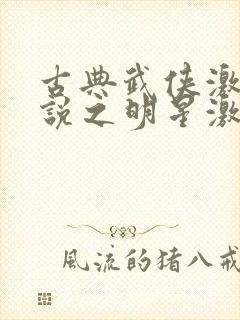 古典武侠激
說之明星激
風流的猪八戒